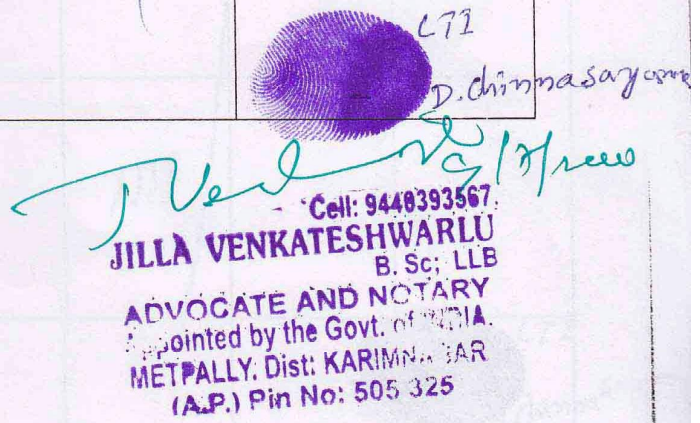 LTI
D. Chinnasayanna
Cell: 9448393567.
JILLA VENKATESHWARLU
B. Sc; LLB
ADVOCATE AND NOTARY
Appointed by the Govt. of INDIA.
METPALLY. Dist: KARIMNAGAR
(A.P.) Pin No: 505 325